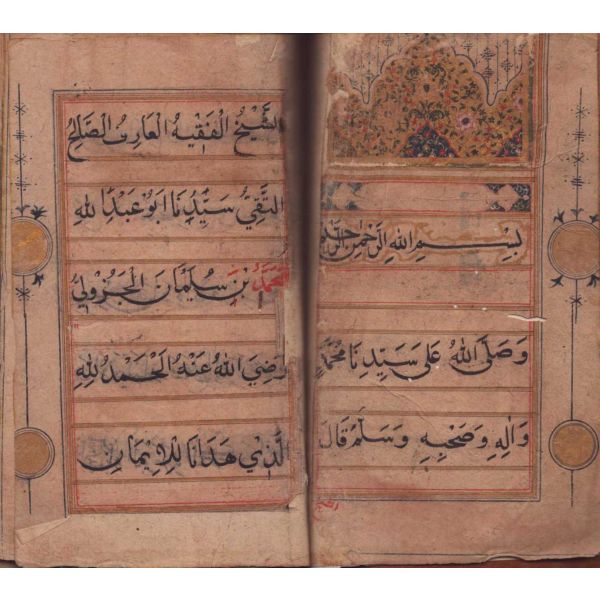 بِسْمِ اللهِ الرَّحْمٰنِ الرَّحِيْمِ
وَصَلَّى اللهُ عَلٰى سَيِّدِنَا مُحَمَّدٍ
وَاٰلِهِ وَصَحْبِهِ وَسَلَّمَ قَالَ
الشَّيْخُ الْفَقِيْهُ الْعَارِفُ الصَّالِحُ
التَّقِيُّ سَيِّدُنَا اَبُوْ عَبْدُ اللهِ
مُحَمَّدُ بْنُ سُلَيْمَانَ الْجَزُوْلِيُّ
رَضِيَ اللهُ عَنْهُ الْحَمْدُ لِلّٰهِ
الَّذِيْ هَدَانَا لِلْاِيْمَانِ